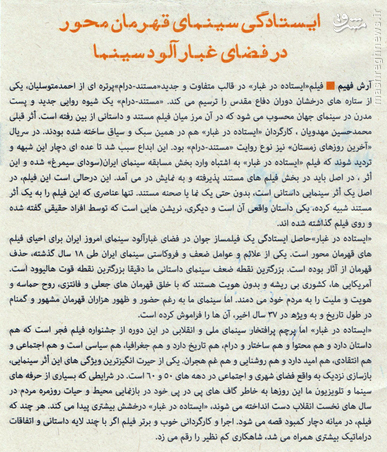 ایستادگی سینمای قهرمان محور
در فضای غبارآلود سینما
آرش فهیم ■ فیلم «ایستاده در غبار» در قالب متفاوت و جدید «مستند-درام» پرتره ای از احمد متوسلیان، یکی
از ستاره های درخشان دوران دفاع مقدس را ترسیم می کند. «مستند-درام» یک شیوه روایی جدید و پست
مدرن در سینمای جهان محسوب می شود که در آن مرز میان فیلم مستند و داستانی از بین رفته است. آثر قبلی
محمدحسین مهدویان ، کارگردان «ایستاده در غبار» هم در همین سبک و سیاق ساخته شده بودند. در سریال
«آخرین روزهای زمستان» نیز نوع روایت «مستند-درام» بود. این ابداع سبب شد تا عده ای دچار این شبهه و
تردید شوند که فیلم «ایستاده در غبار» به اشتباه وارد بخش مسابقه سینمای ایران(سودای سیمرغ) شده و این
أثر ، در اصل باید در بخش فیلم های مستند پذیرفته و به نمایش در می آمد. این درحالی است که این فیلم، در
اصل یک أثر سینمایی داستانی است، بدون حتی یک نما یا صحنه مستند. تنها عناصری که این فیلم را به یک أثر
مستند شبیه کرده، یکی داستان واقعی آن است و دیگری، نریشن هایی است که توسط افراد حقیقی گفته شده
و روی فیلم گذاشته شده اند.
«ایستاده در غبار»حاصل ایستادگی یک فیلمساز جوان در فضای غبارآلود سینمای امروز ایران برای احیای فیلم
های قهرمان محور است. یکی از علائم و عوامل ضعف و فروکاستی سینمای ایران طی ۱۸ سال گذشته، حذف
قهرمان از آثار بوده است. بزرگترین نقطه ضعف سینمای داستانی ما دقیقا بزرگترین نقطه قوت هالیوود است.
آمریکایی ها، کشوری بی ریشه و بدون هویت هستند که با خلق قهرمان های جعلی و فانتزی، روح حماسه و
هویت و ملیت را به مردم خود می دمند. اما سینمای ما به رغم حضور و ظهور هزاران قهرمان مشهور و گمنام
در طول تاریخ و به ویژه در ۳۷ سال اخیر، آن ها را فراموش کرده است.
«ایستاده در غبار» اما پرچم پرافتخار سینمای ملی و انقلابی در این دوره از جشنواره فیلم فجر است که هم
داستان دارد و هم محتوا و هم ساختار و درام، هم تاریخ دارد و هم جغرافیا، هم سیاسی است و هم اجتماعی و
هم انتقادی، هم امید دارد و هم روشنایی و هم غم هجران. یکی از حیرت انگیزترین ویژگی های این أثر سینمایی،
بازسازی نزدیک به واقع فضای شهری و اجتماعی در دهه های ۵۰ و ۶۰ است. در شرایطی که بسیاری از حرفه های
سینما و تلویزیون ما این روزها به خاطر گاف های پی در پی خود در بازنمایی محیط و حیات روزمره مردم در
سال های نخست انقلاب دست انداخته می شوند، «ایستاده در غبار» درخشش بیشتری پیدا می کند. هر چند که
فیلم، در میانه دچار کمبود قصه می شود. اجرا و کارگردانی خوب و برتر فیلم اگر با چند لایه داستانی و اتفاقات
دراماتیک بیشتری همراه می شد، شاهکاری کم نظیر را رقم می زد.
مشرق
mashreghnews.ir